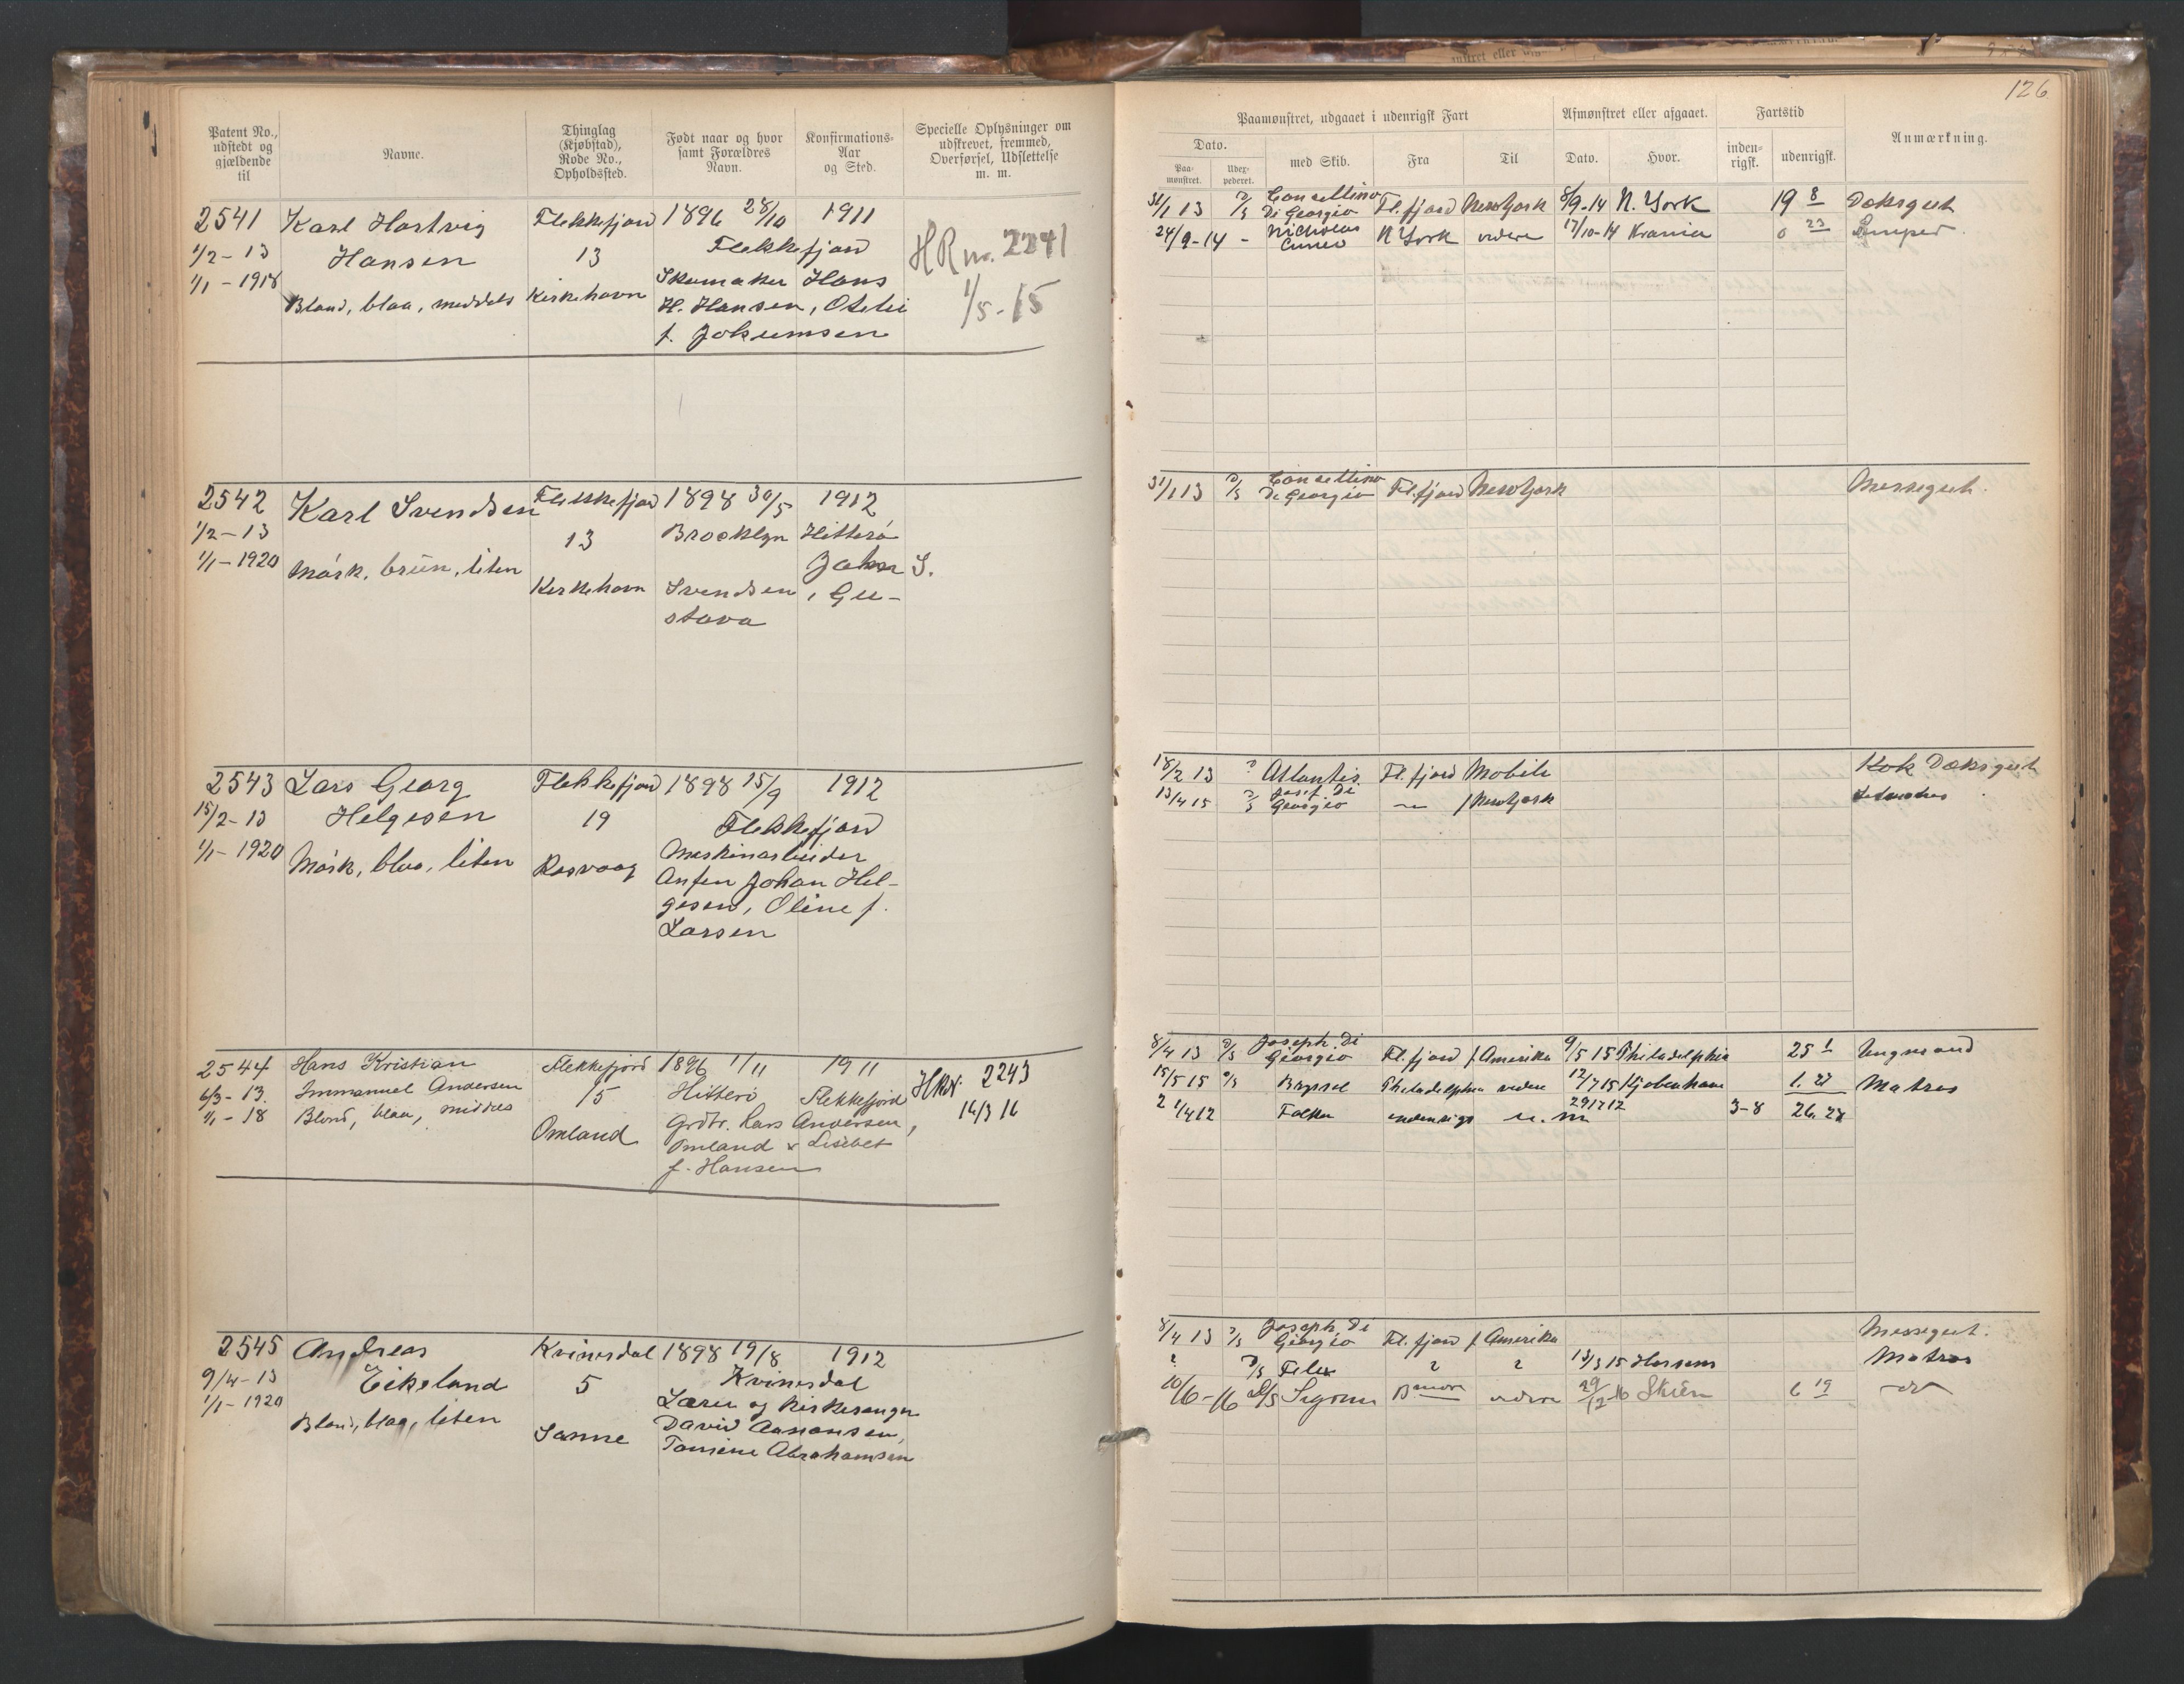 126
Patent No., udstedt og gjældende til
Navne.
Thinglag (Kjøbstad), Rode No., Opholdssted.
Født naar og hvor samt Forældres Navn.
Konfirmations-Aar og Sted.
Specielle Oplysninger om udskrevet, fremmed, Overførsel, Udslettelse m. m.
Paamønstret, udgaaet i udenrigsk Fart
Afmønstret eller afgaaet.
Fartstid
Anmærkning.
Dato.
Paa-mønstret.
Udex-pederet.
med Skib.
Fra
Til
Dato.
Hvor.
inden-rigsk.
udenrigsk.
2541 Karl Hartvig Flekkefjord 1896 28/10 1911
1/2 - 13 Hansen 13 Flekkefjord
1/1 - 1918 Blond, blaa, middels Kirkehavn Skomaker Hans
H. Hansen, Otelie
f. Jokumsen
HR no. 2241
1/5 - 15
31/1 13 D/S Concettino Di Georgio Fl.fjord New York 8/9-14 N. York 19 8 Dæksgut
24/9-14 - Nicholas Cuneo N York videre 17/10-14 Krania 0 23
2542 Karl Svendsen Flekkefjord 1898 30/5 1912
1/2 - 13 13 Brooklyn Hitterø
1/1 - 1920 Mørk, brun, liten John S.
Kirkehavn Svendsen, Gu-
stava
31/1 13 D/S Concettino Di Georgio Fl.fjord New York Messegut.
2543 Lars Georg Flekkefjord 1898 15/9 1912
15/2 - 13 Helgesen 19 Flekkefjord
1/1 - 1920 Mørk, blaa, liten Rasvaag Maskinarbeider
Anfen Johan Hel-
gesen, Oline f.
Larsen
18/2 13 D Atlantis Fl.fjord Mobile Kok Dæksgut
13/4 15 D/S Josef Di Georgio - f New York
2544 Hans Kristian Flekkefjord 1896 1/11 1911
6/3 - 13. Immanuel Andersen 15 Hitterø Flekkefjord
1/1 - 18 Blond, blaa, middels Omland Grdbr. Lars Andersen,
Omland & Lisebet
f. Hansen
HR Nr. 2243
14/3 16
8/4 13 D/S Joseph Di Georgio Fl.fjord f Amerika 9/5 15 Philadelphia 25 1 Ungmand
15/5 15 D/S Philadelphia videre 12/7 15 Kjøbenhavn 1. 27 Matros
2 1/4 12 Falken indenrigs 29/7 12 3-8 26. 28
2545 Andreas Kvinesdal 1898 19/8 1912
9/4 - 13 Eikeland 5 Kvinesdal
1/1 - 1920 Blond, blaa, liten Lærer og kirkesanger
David Aanonsen,
Tomine Abrahamsen
8/4 13 D/S Joseph Di Georgio Fl.fjord f Amerika Messegut.
? D/S Felix ? ? 13/3 15 Horsens Matros
10/6 - 16 D/S videre 29/12 16 Skien 6 19 do